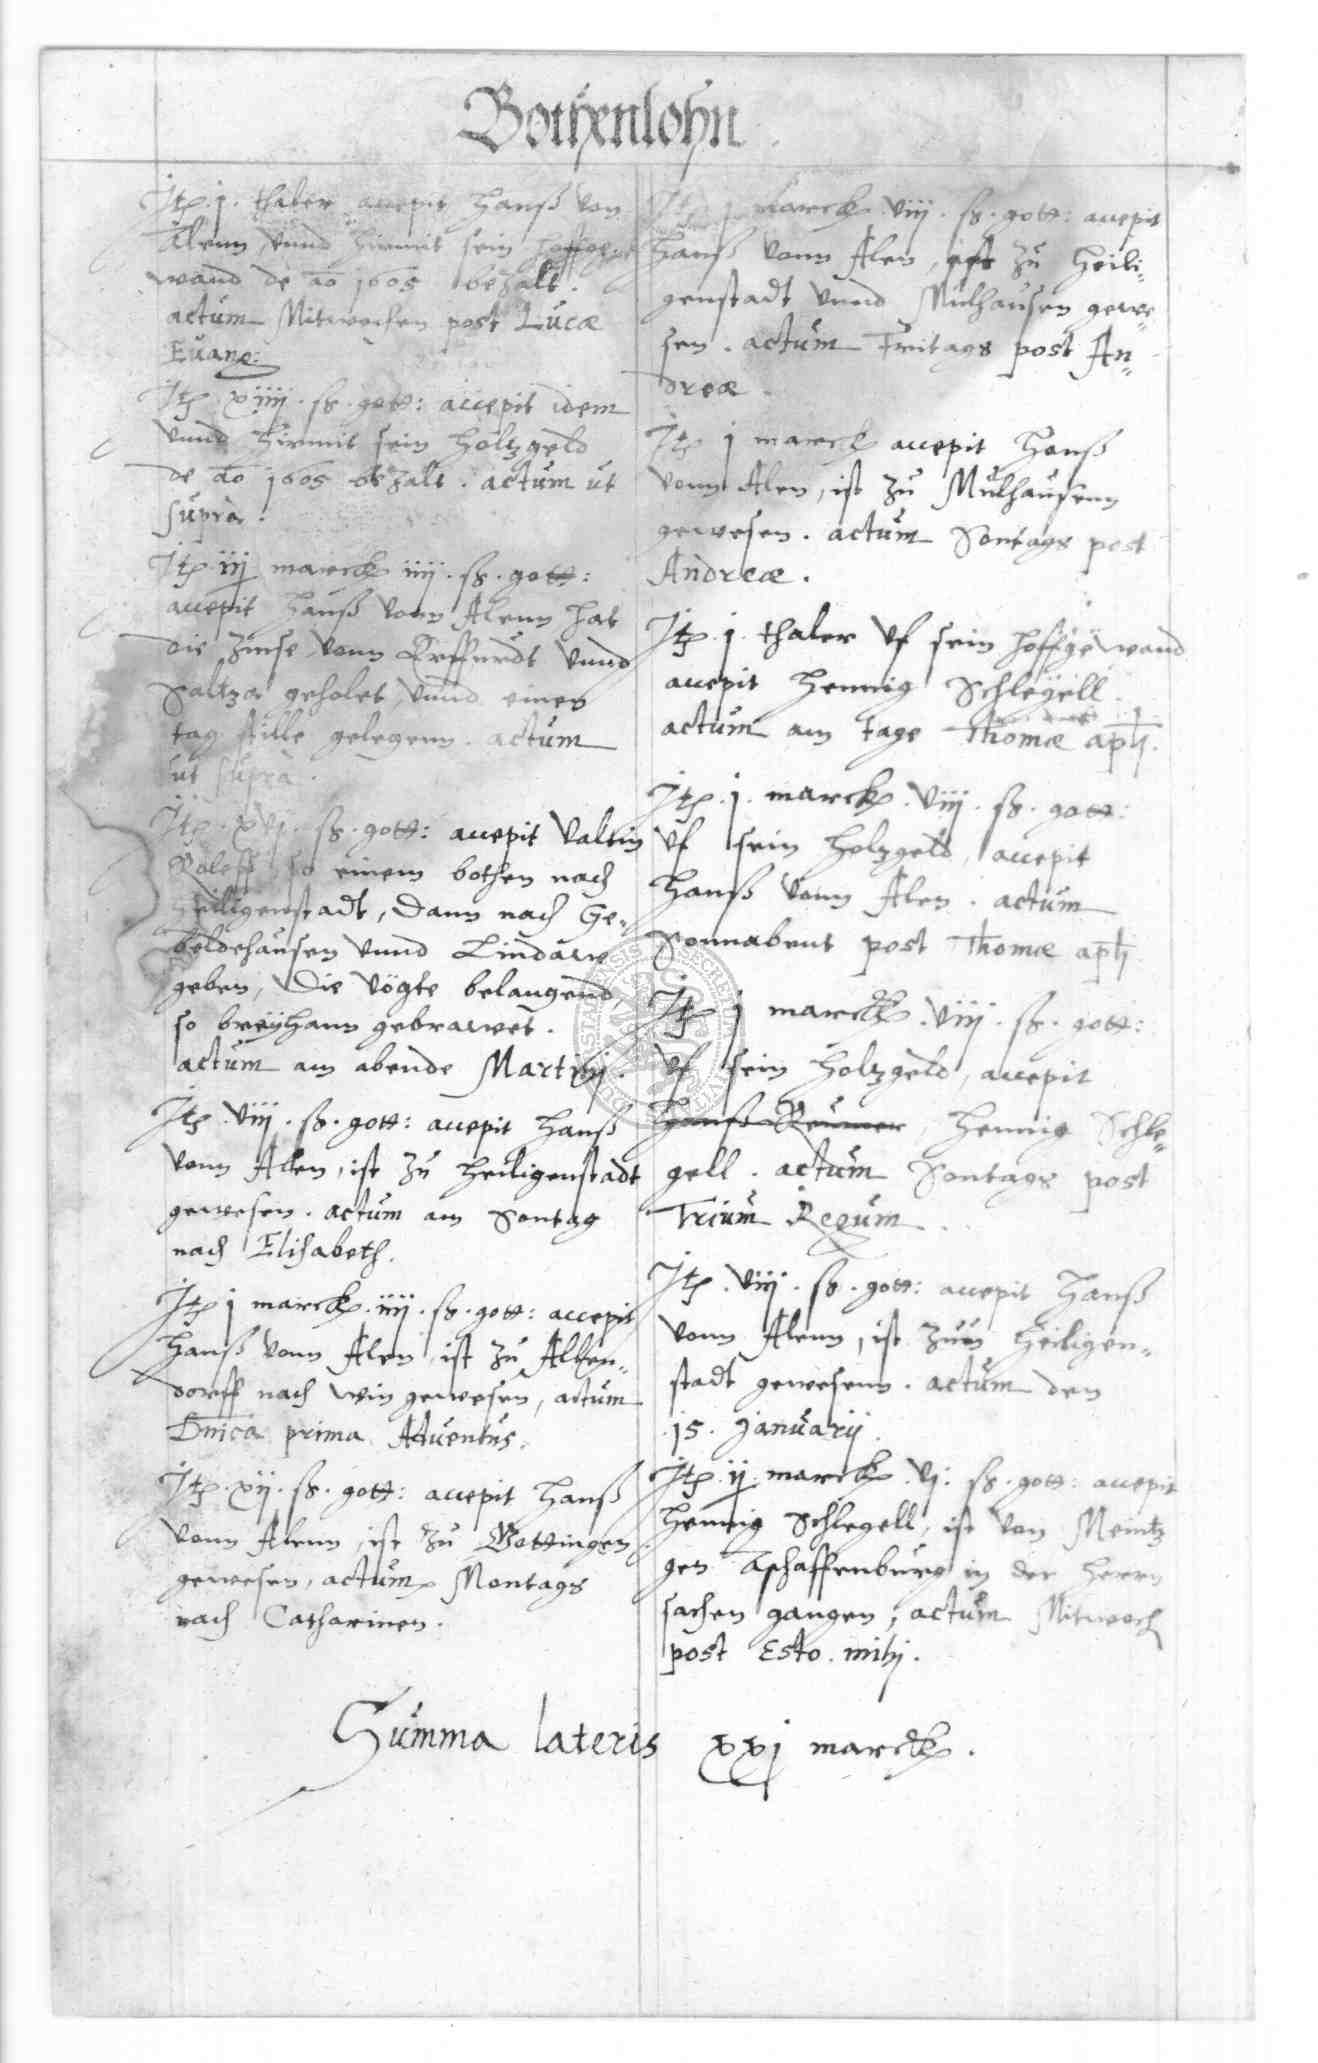 Bothenlohn
Itẽ .j. thaler accepit Hanß von
Alenn, vnnd hiermit sein hoffge
wand de ao 1605 behalt.
actum Mitwochen post Lucæ
Euang:
Itẽ xiiij. sß. gott: accepit idem
vnnd hirmit sein holtzgeld
de ao 1605 bezalt. actum ut
supra.
Itẽ iij marck iiij. sß. gott:
accepit Hanß vonn Alenn hat
die Zinse vonn Erffurdt vnnd
Saltza geholet, vnnd einen
tag stille gelegenn. actum
ut supra.
Itẽ. xvj. sß. gott: accepit Valtin
so einem bothen nach
Heiligenstadt, dann nach Ge-
beldehausen vnnd Lindaw
geben, die Vögte belangend
so breÿhann gebrawet.
actum am abende Martinj.
Itẽ viij. sß. gott: accepit Hanß
vonn Alen, ist zu Heiligenstadt
gewesen. actum am Sontag
nach Elisabeth.
Itẽ j marck. iiij. sß. gott: accepit
Hanß vonn Alen, ist zu Allen-
dorff nach win gewesen, actum
Dnica prima Aduentus.
Itẽ. xij. sß. gott: accepit Hanß
vonn Alenn, ist zu Gottingen
gewesen, actum Montags
nach Catharinen.
Itẽ j marck viij. sß. gott: accepit
Hanß vonn Alen, ist zu Heili-
genstadt vnnd Mulhausen gewe-
sen. actum Freitags post An-
dreæ.
Itẽ j marck accepit Hanß
vonn Alen, ist zu Mulhausenn
gewesen. actum Sontags post
Andreæ.
Itẽ .j. thaler vf sein hoffgewand
accepit Hennig Schlegell.
actum am tage Thomæ apli.
Itẽ .j. marck. viij. sß. gott:
vf sein holtzgeld, accepit
Hanß vonn Alen. actum
Sonnabent post Thomæ apli
Itẽ j marck. viij. sß. gott:
vf sein holtzgeld, accepit
Hanß Hennig Schle-
gell. actum Sontags post
Trium Regum.
Itẽ. viij. sß. gott: accepit Hanß
vonn Alenn, ist zum Heiligen-
stadt gewesenn. actum den
15. Januarij.
Itẽ ij marck. vj. sß. gott: accepit
Hennig Schlegell, ist von Meintz
gen Aschaffenburg in der Herrn
sachen gangen, actum Mitwoch
post Esto mihj.
Summa lateris xxj marck.